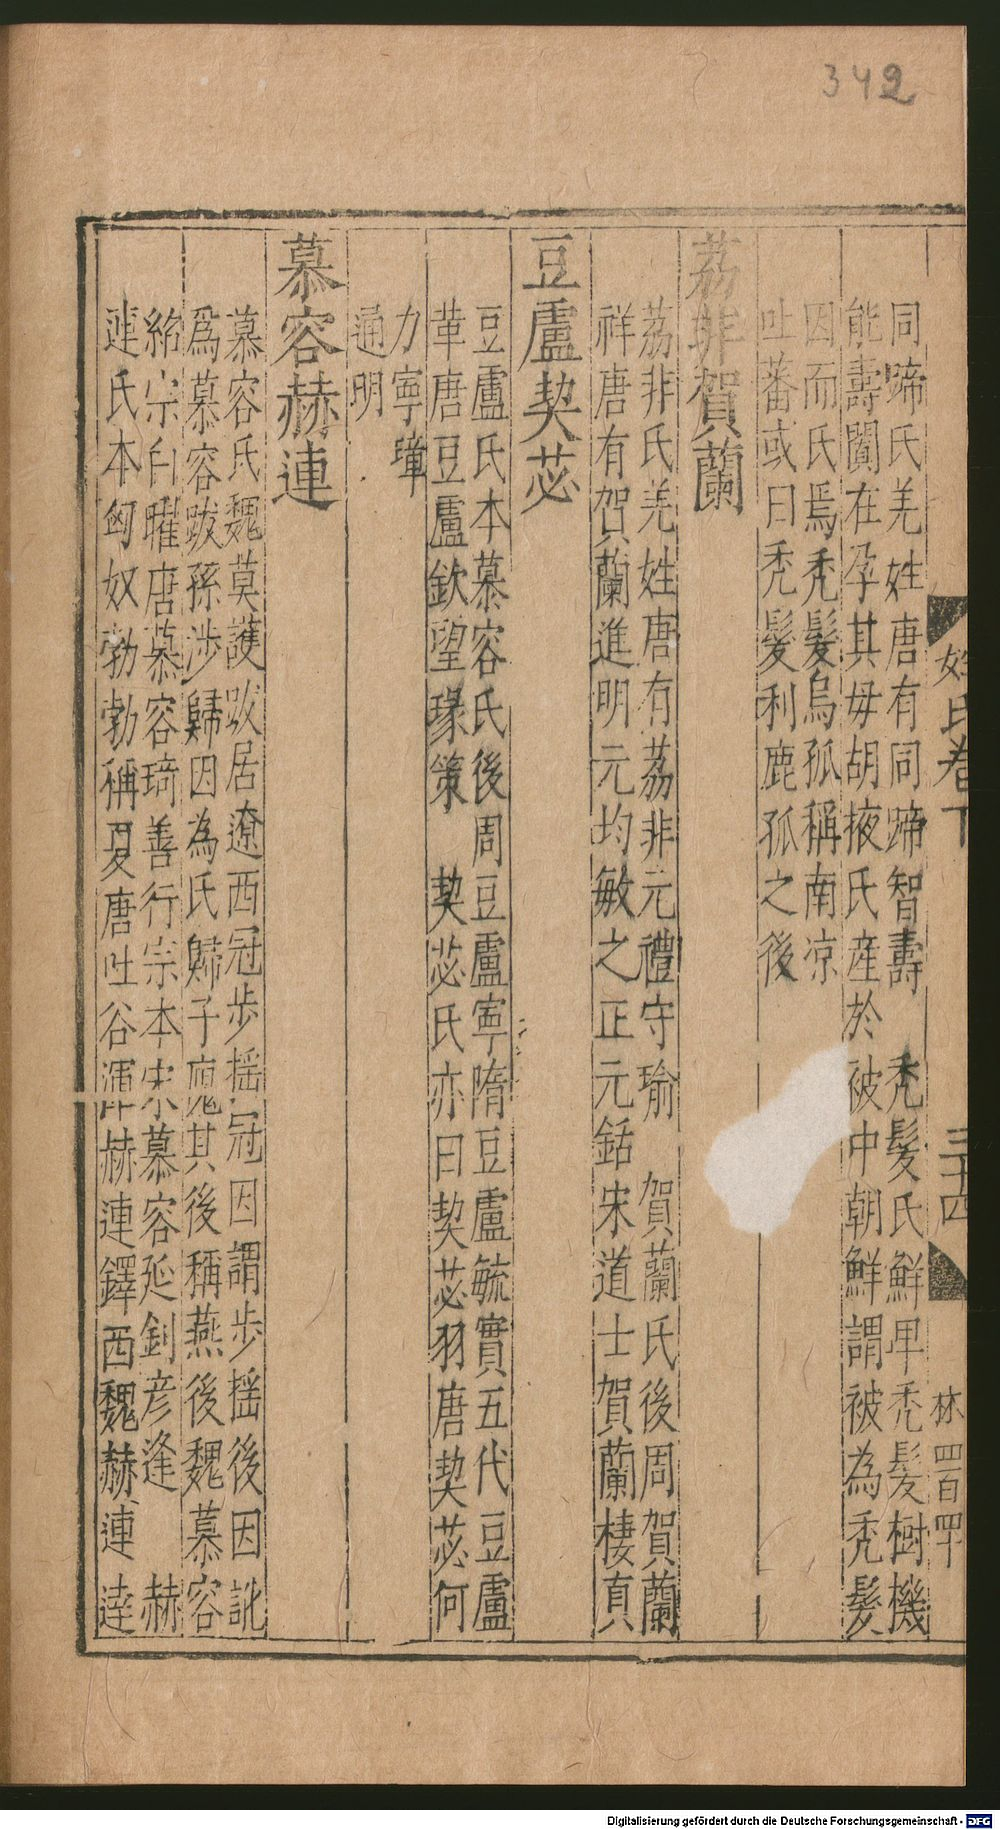 342
姓氏卷下
三十四
林
四百四十
同蹄氏羌姓唐有同蹄智壽　禿髮氏鮮卑禿髮樹機
能壽闐在孕其母胡掖氏産於被中朝鮮謂被為禿髮
因而氏焉禿髮烏孤稱南凉
吐蕃或曰禿髮利鹿孤之後
荔非賀蘭
荔非氏羌姓唐有荔非元禮守瑜　賀蘭氏後周賀蘭
祥唐有賀蘭進明元均敏之正元銛宋道士賀蘭棲真
豆盧契苾
豆盧氏本慕容氏後周豆盧寧隋豆盧毓實五代豆盧
革唐豆盧欽望瑑策　契苾氏亦曰契苾羽唐契苾何
力寧璋
通明
慕容赫連
慕容氏魏莫護跋居遼西冠步揺冠因謂步揺後因訛
爲慕容跋孫涉歸因為氏歸子廆其後稱燕後魏慕容
紹宗白曜唐慕容琦善行宗本宋慕容延釗彦逢　赫
連氏本匈奴勃勃稱夏唐吐谷渾部赫連鐸西魏赫連逹
Digitalisierung gefördert durch die Deutsche Forschungsgemeinschaft - DFG